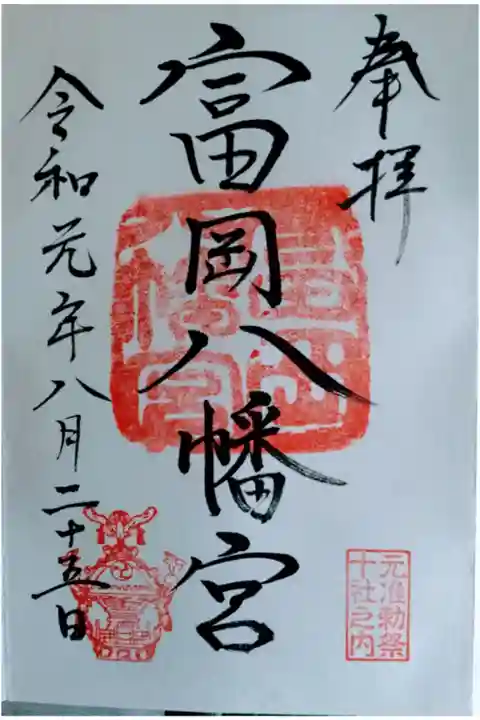 奉拝
富岡八幡宮
令和元年八月二十五日
元准勅祭
十社之内